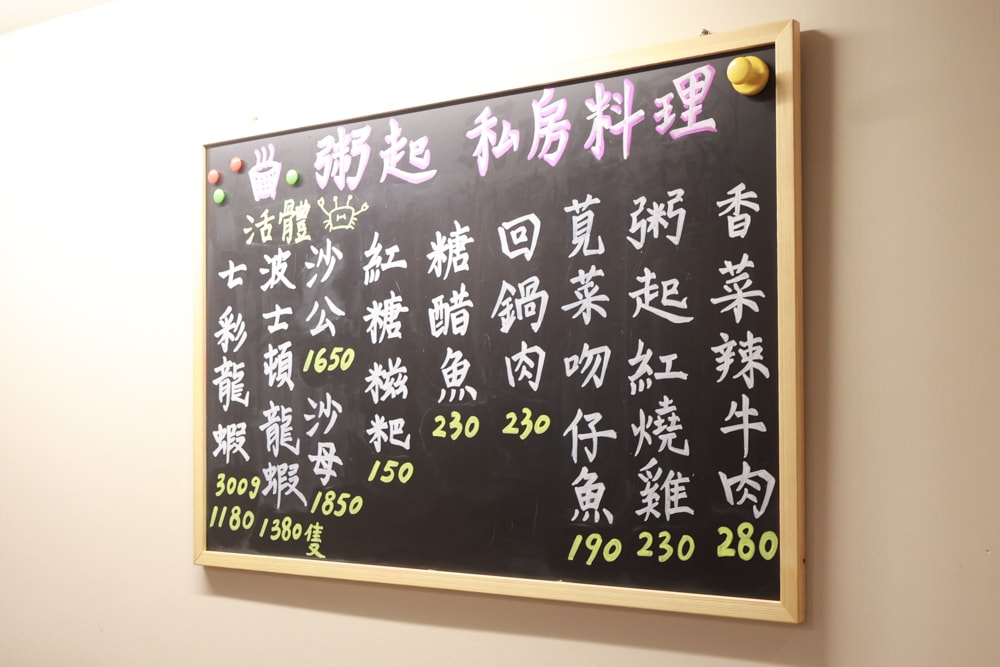 粥起 私房料理
香菜辣牛肉
280
粥起紅燒雞
230
莧菜吻仔魚
190
回鍋肉
230
糖醋魚
230
紅糖糍粑
150
活體
沙公
1650
沙母
1850
波士頓龍蝦
1380隻
七彩龍蝦
300g
1180